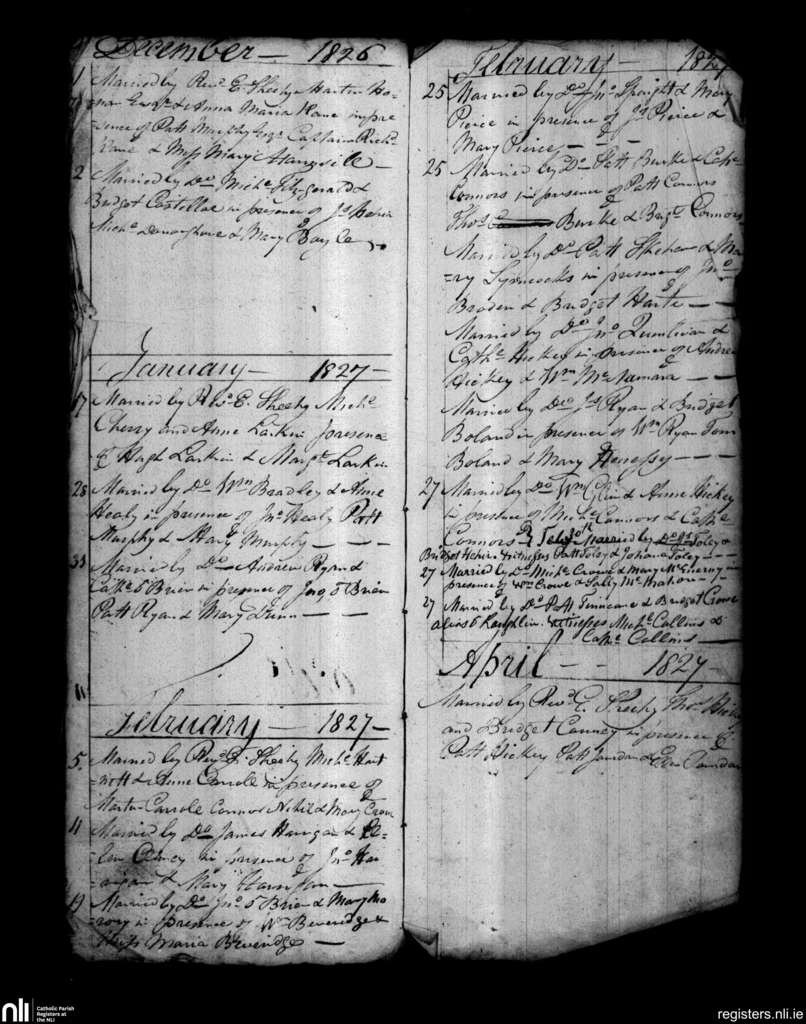 December — 1826
1 Married by Revd. E. Sheehy Martin Ho-
nan Esqr. & Anna Maria Kane in pre
sence of Patt Murphy Esqr. Captain Richd.
Kane & Miss Mary
2 Married by Do. Michl. Fitzgerald &
Bridget Costelloe in presence of
Michl. Donoghoue & Mary Boyle
January — 1827 —
17 Married by Revd. E. Sheehy Michl.
Cherry and Anne Larkin presence
of Hugh Larkin & Margt. Larkin
28 Married by Do. Wm. Bradley & Anne
Healy in presence of Jno. Healy Patt
Murphy & Murphy — — —
Married by Do. Andrew Ryan &
Cathe. O Brien in presence of Jno. O Brien
Patt Ryan & Mary — —
11
February — 1827 —
5. Married by Revd. E. Sheehy Michl. Hart
=nett & Anne Carroll in presence of
Martin Carroll Connor & Mary Crow
11 Married by Do. James & El-
=len Clancy in presence of Jno.
& Mary —
19 Married by Do. Jno. O Brien & Mary Mo
=rony in presence of Wm. Beveridge &
Miss Maria Beveridge —
February — 1827
25 Married by Do. Jno. Straight & Mary
Pierce in presence of Js. Pierce &
Mary Pierce — —
25 Married by Do. Patt Burke & Cathe.
Connors in presence of Patt Connors
Thos. Burke & Bridgt. Connors
Married by Do. Patt & Ma
=ry in presence of Jno.
Broden & Bridget Harte — —
Married by Do. Jno. Quinlivan &
Cathe. Hickey in presence of Andrew
Hickey & Wm. McNamara — —
Married by Do. Js. Ryan & Bridget
Boland in presence of Wm. Ryan
Boland & Mary Henessy — — —
27 Married by Do. Wm. Glin & Anne Hickey
in presence of Michl. Connors & Cathe.
Connors Married by Do. Foley &
Bridget Hehir. Witnesses Patt Foley & Johana Foley — —
27 Married by Do. Michl. Crowe & Mary McEnerny in
presence of Wm. Crowe & Sally McMahon —
27 Married by Do. Patt Finucane & Bridget Crowe
alias O Laughlin. Witnesses Michl. Collins &
Cathe. Collins —
April — — 1827
Married by Revd. E. Sheehy Thos.
and Bridget in presence of
Patt Hickey Patt &
nli
Catholic Parish
Registers at
the NLI
registers.nli.ie